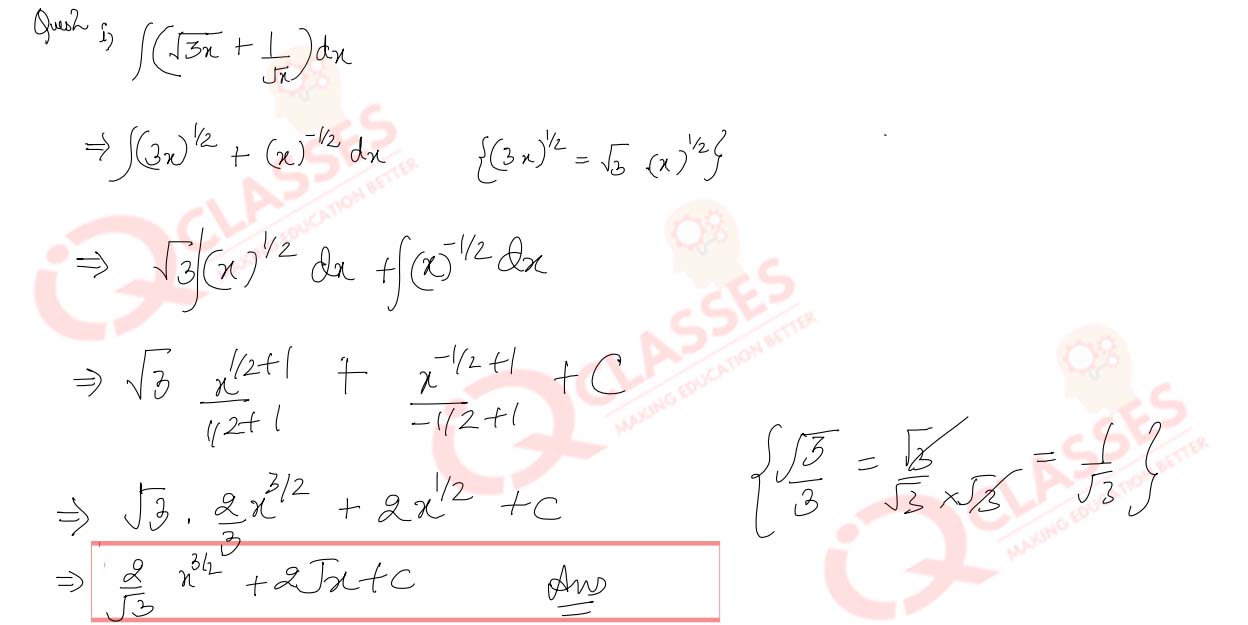 Ques2 i) ∫(√3x + 1/√x)dx
⇒ ∫(3x)^1/2 + (x)^-1/2 dx {(3x)^1/2 = √3 .(x)^1/2}
⇒ √3∫(x)^1/2 dx + ∫(x)^-1/2 dx
⇒ √3 x^1/2+1 / 1/2+1 + x^-1/2+1 / -1/2+1 + C
{√3/3 = √3/√3×√3 = 1/√3}
⇒ √3 . 2/3 x^3/2 + 2x^1/2 + C
⇒ 2/√3 x^3/2 + 2√x + C Ans
iQ CLASSES
MAKING EDUCATION BETTER
iQ CLASSES
MAKING EDUCATION BETTER
iQ CLASSES
MAKING EDUCATION BETTER